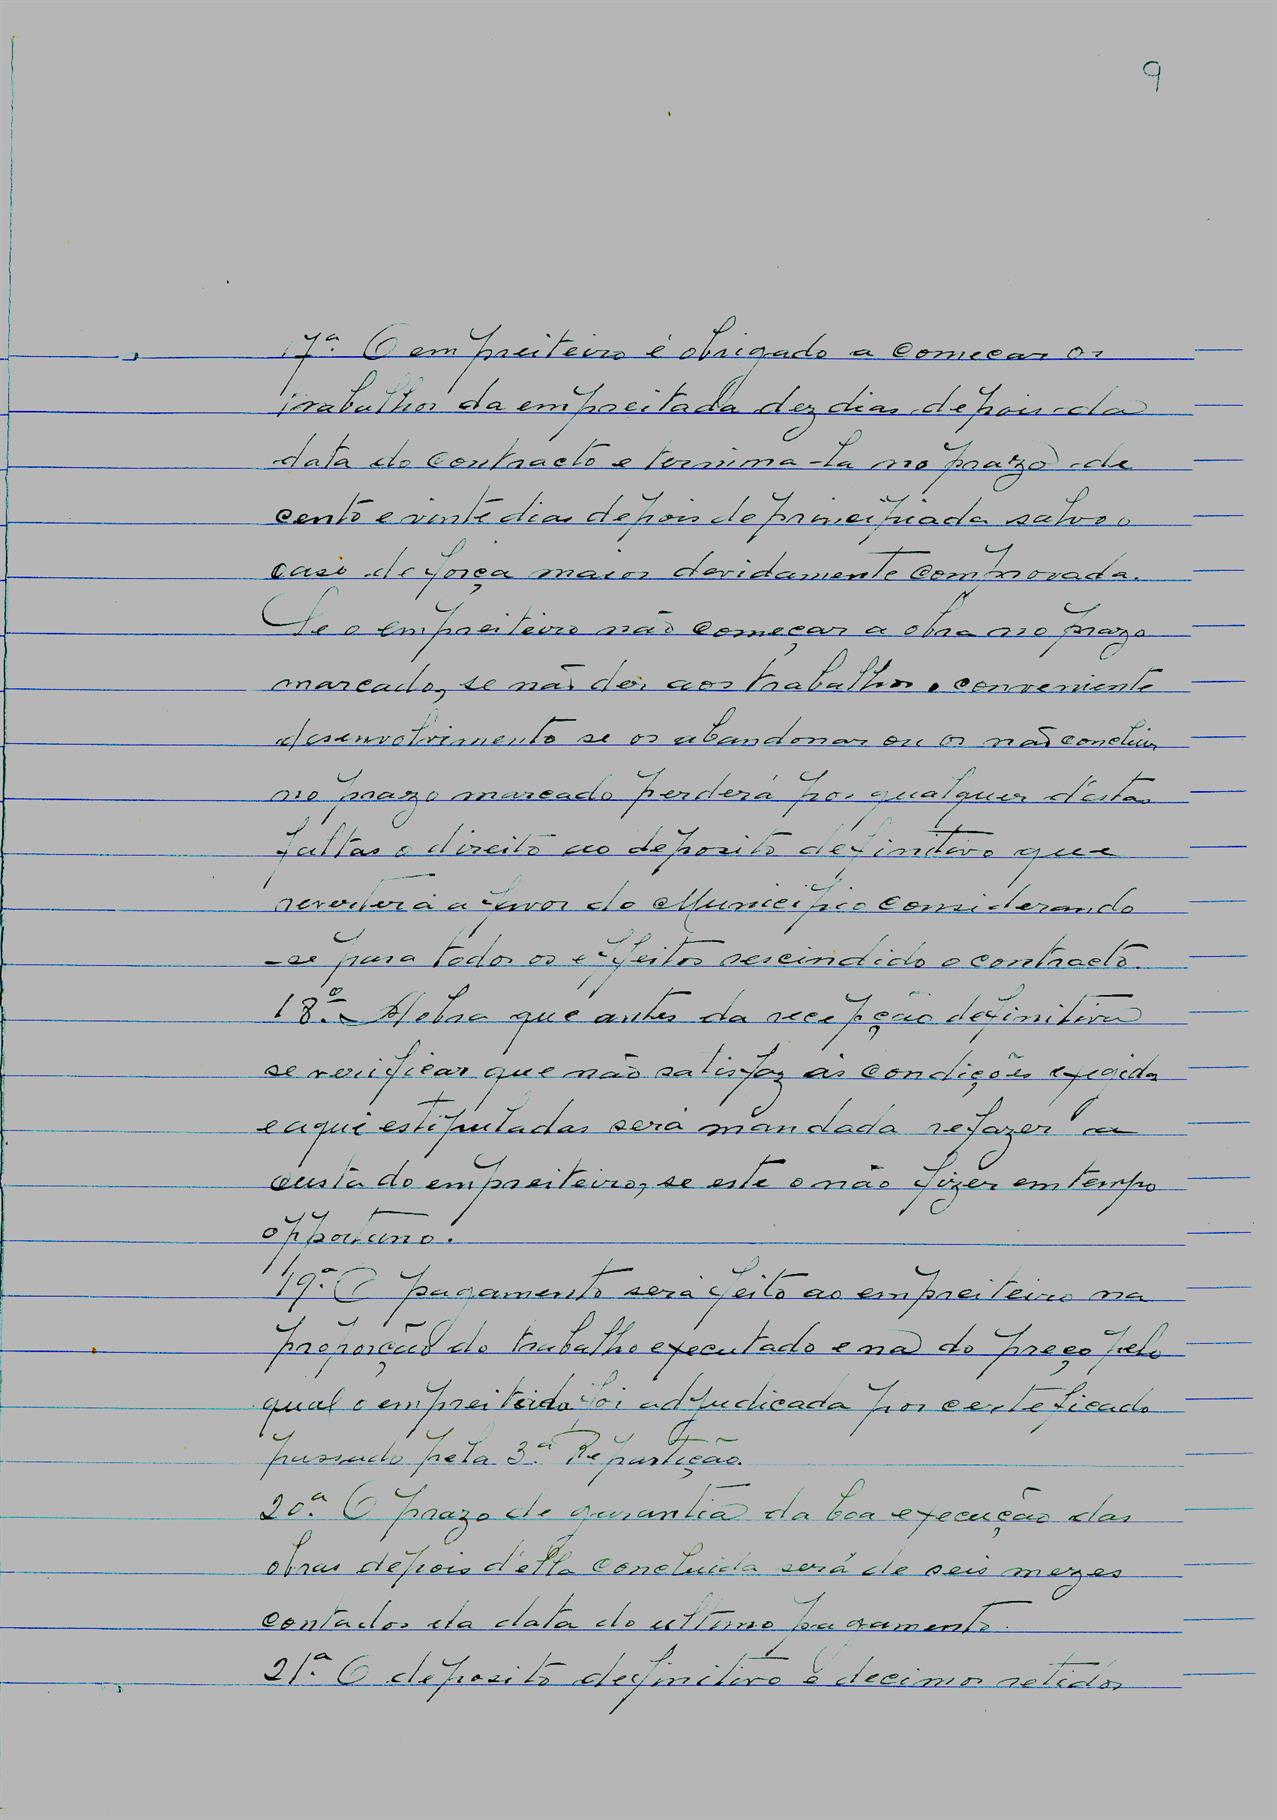 9
17ª. O empreiteiro é obrigado a começar os
trabalhos da empreitada dez dias depois da
data do contracto e termina-la no prazo de
cento e vinte dias depois de principiada salvo o
caso de força maior devidamente comprovada.
Se o empreiteiro não começar a obra no prazo
marcado, se não der aos trabalhos o conveniente
desenvolvimento se os abandonar ou os não concluir
no prazo marcado perderá por qualquer d'estas
faltas o direito ao deposito definitivo que
reverterá a favor do Municipio considerando
-se para todos os effeitos rescindido o contracto.
18ª. A obra que antes da recepção definitiva
se verificar que não satisfaz ás condições exigidas
e aqui estipuladas será mandada refazer a
custa do empreiteiro, se este o não fizer em tempo
opportuno.
19ª. O pagamento será feito ao empreiteiro na
proporção do trabalho executado e na do preço pelo
qual o empreitada foi adjudicada por certeficado
passado pela 3ª. Repartição.
20ª. O prazo de garantia da boa execução das
obras depois d'ella concluida será de seis mezes
contados da data do ultimo pagamento.
21ª. O deposito definitivo e decimos retidos